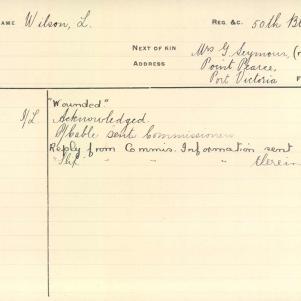 NAME Wilson, L. REG. &C. 50th B
NEXT OF KIN Mrs G. Seymour, (
ADDRESS Point Pearce,
Port Victoria F
"Wounded"
Acknowledged.
O/Cable sent Commissioners
Reply from Commis. Information sent
" " " therein